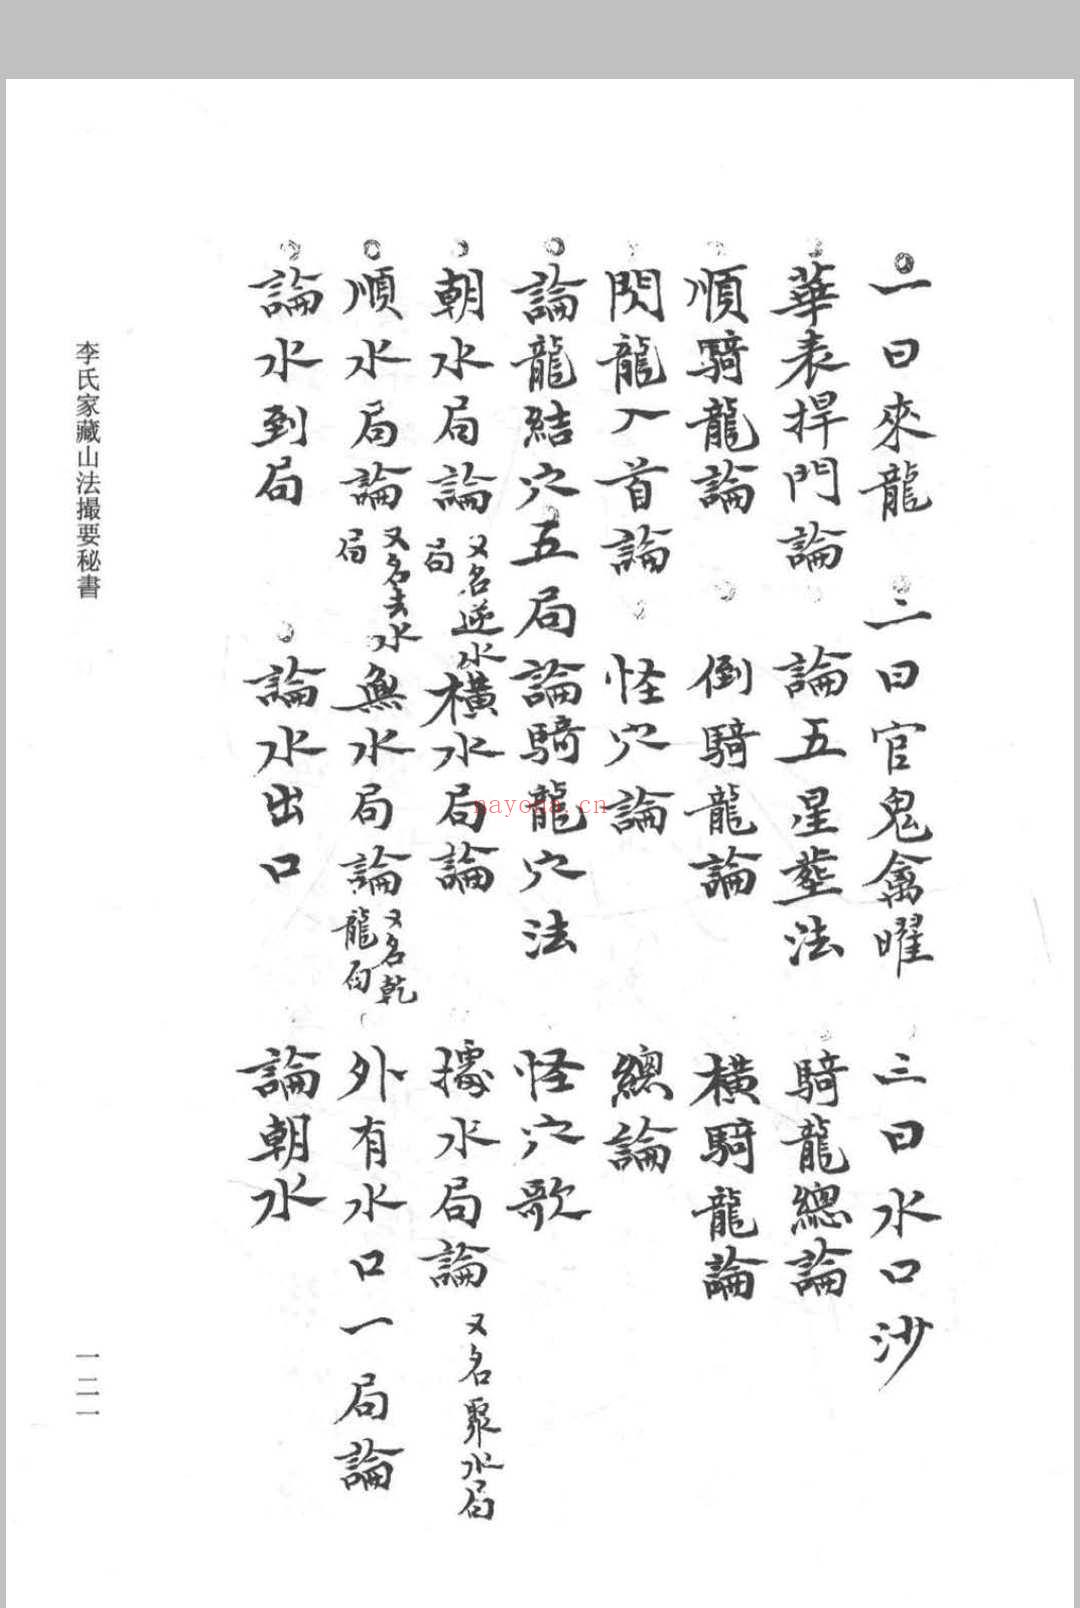 一曰來龍 二曰官鬼禽曜 三曰水口沙
華表捍門論 論五星塟法 騎龍總論
順騎龍論 倒騎龍論 橫騎龍論
閃龍入首論 怪穴論 總論
論龍結穴五局論騎龍穴法 怪穴歌
朝水局論又名逆水局 橫水局論 據水局論又名聚水局
順水局論又名去水局 無水局論又名乾龍局 外有水口一局論
論水到局 論水出口 論朝水
李氏家藏山法撮要秘書
一二一
nayona.cn